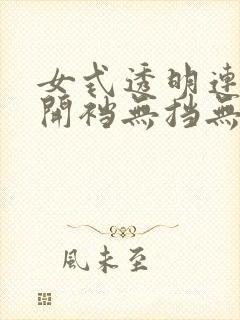 女式透明連
開襠無擋無
風未至